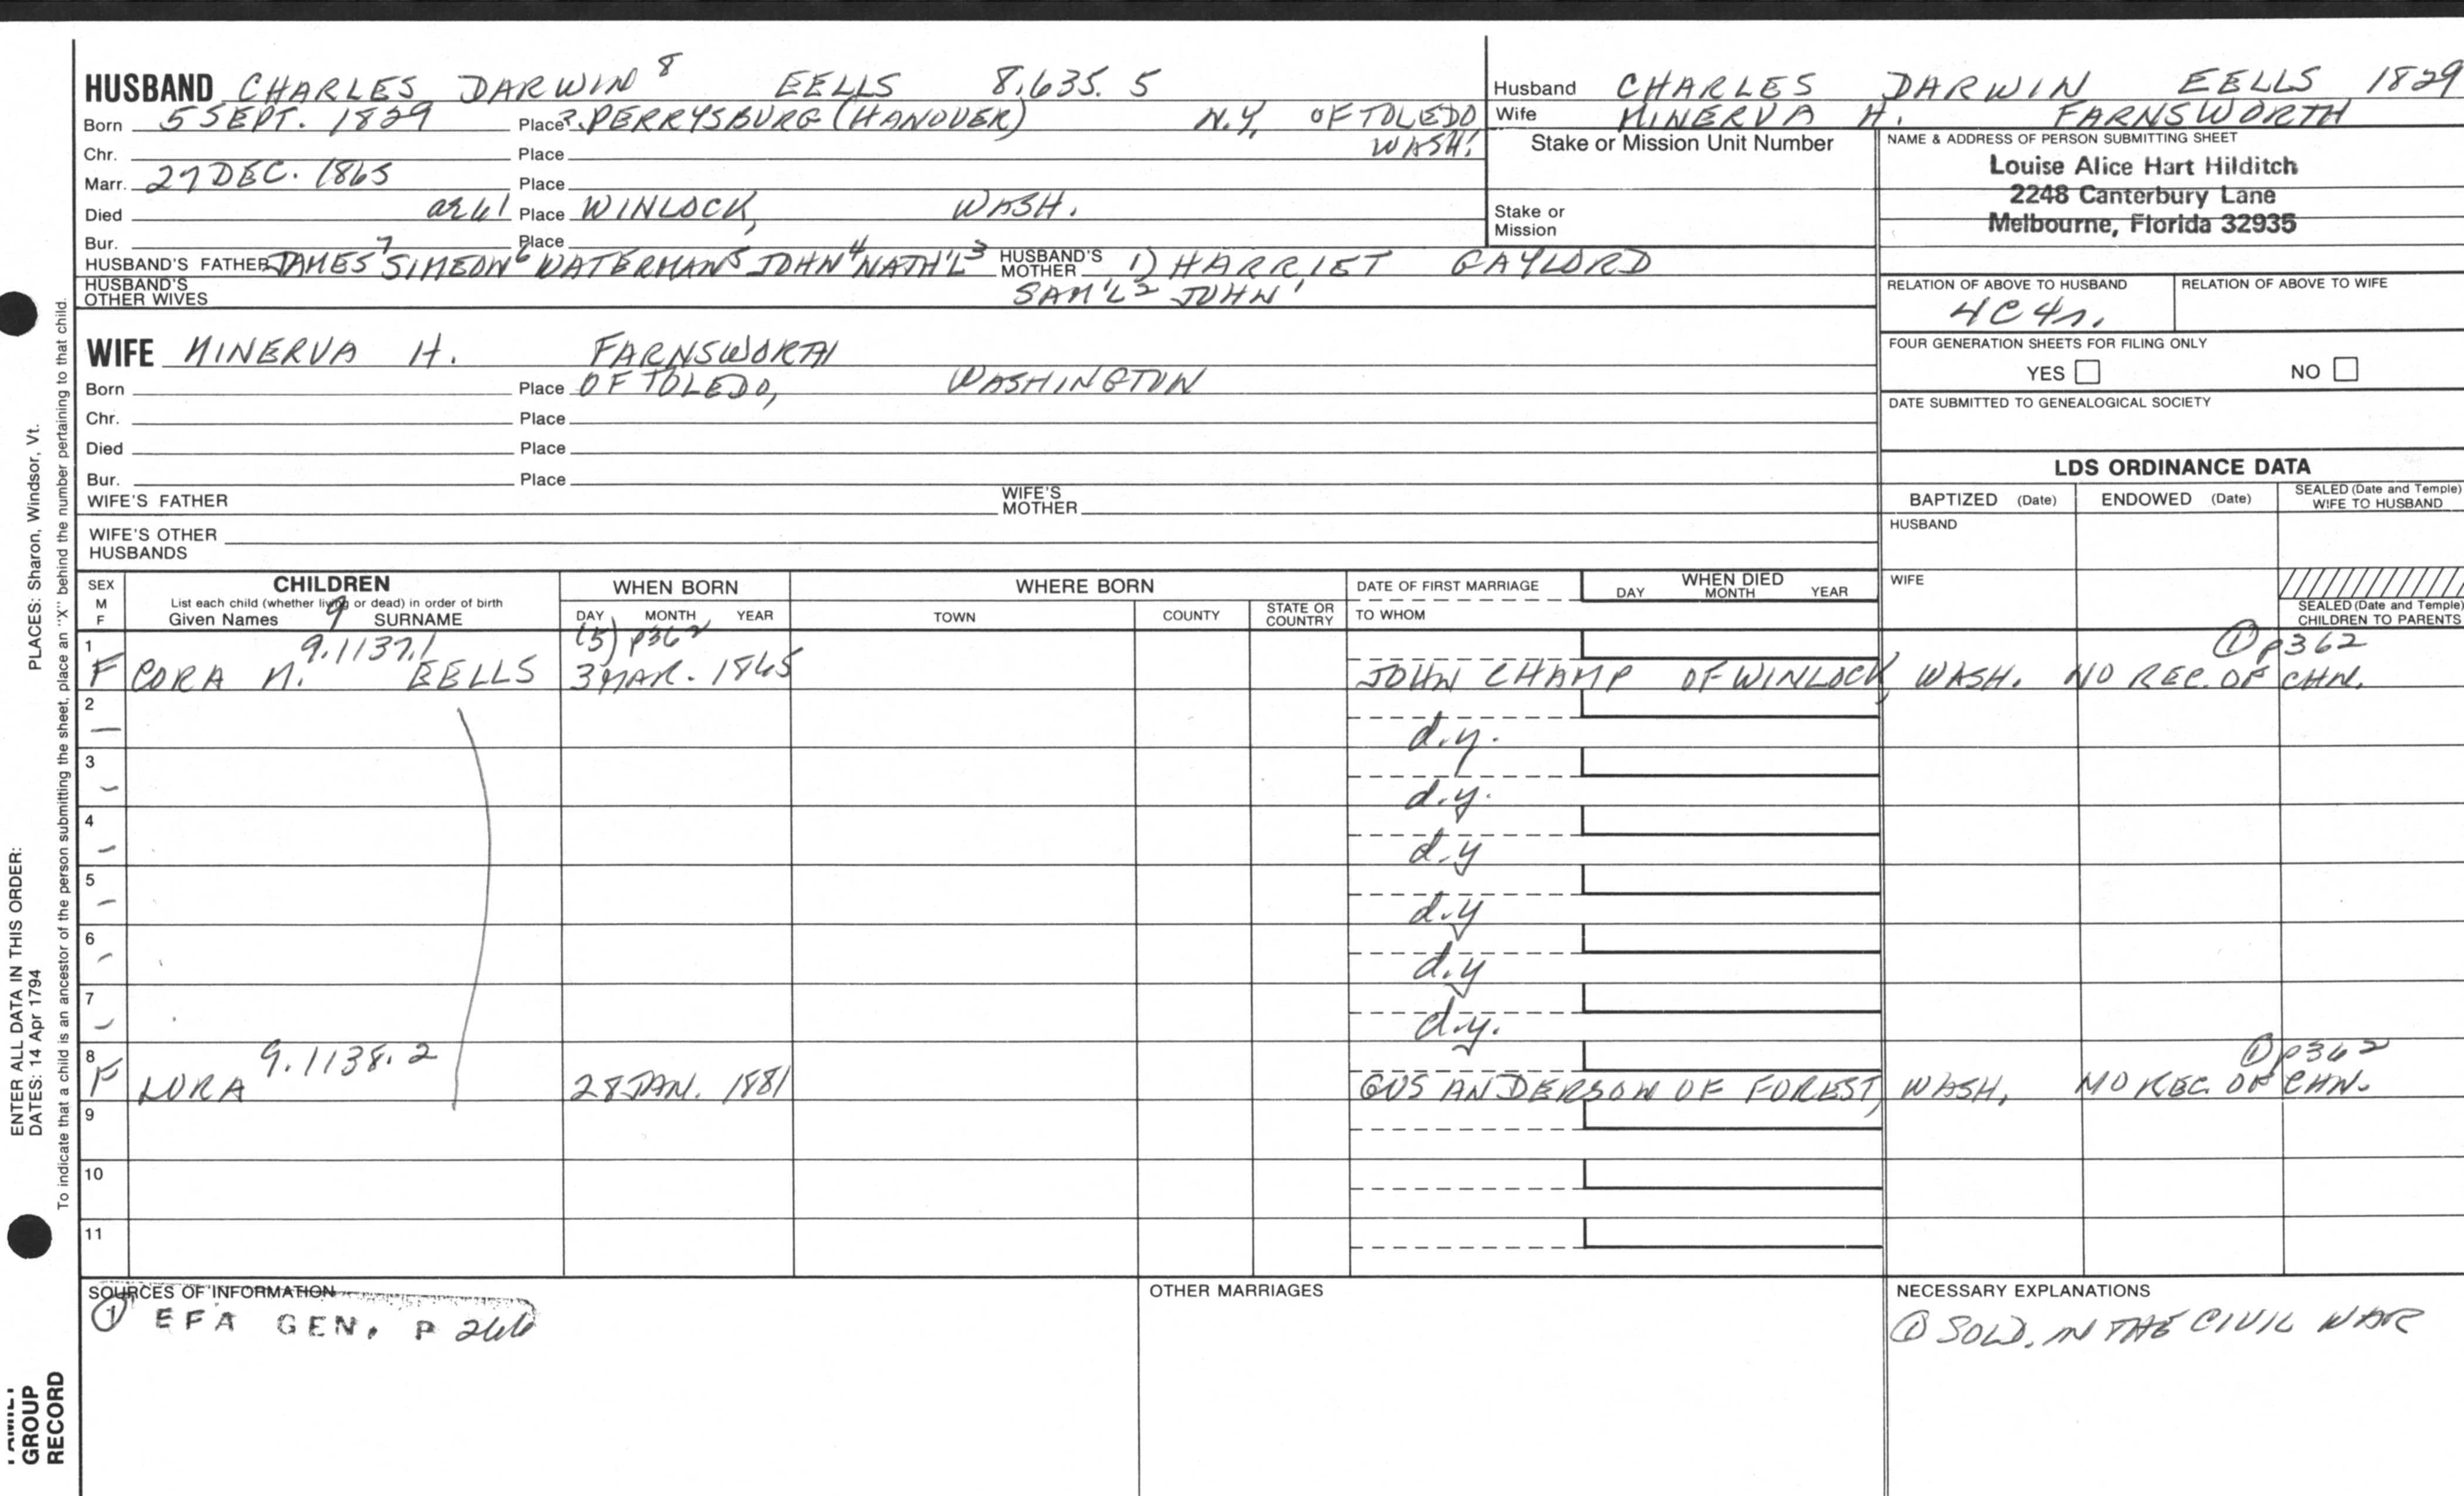 HUSBAND CHARLES DARWIN 8 EELLS 8.635.5
Born 5 SEPT. 1829 Place ?. PERRYSBURG (HANOVER) N.Y. OF TOLEDO
WASH.
Chr. Place
Marr. 27 DEC. 1865 Place
Died Place WINLOCK, WASH.
Bur. Place
HUSBAND'S FATHER JAMES 7 SIMEON 6 WATERMAN 5 JOHN 4 NATH'L 3 HUSBAND'S MOTHER 1) HARRIET GAYLORD
HUSBAND'S OTHER WIVES SAM'L 2 JOHN 1
WIFE MINERVA H. FARNSWORTH
Born Place OF TOLEDO, WASHINGTON
Chr. Place
Died Place
Bur. Place
WIFE'S FATHER WIFE'S MOTHER
WIFE'S OTHER HUSBANDS
Husband CHARLES DARWIN EELLS 1829
Wife MINERVA H. FARNSWORTH
Stake or Mission Unit Number
Stake or Mission
NAME & ADDRESS OF PERSON SUBMITTING SHEET
Louise Alice Hart Hilditch
2248 Canterbury Lane
Melbourne, Florida 32935
RELATION OF ABOVE TO HUSBAND RELATION OF ABOVE TO WIFE
4C4r.
FOUR GENERATION SHEETS FOR FILING ONLY
YES NO
DATE SUBMITTED TO GENEALOGICAL SOCIETY
LDS ORDINANCE DATA
BAPTIZED (Date) ENDOWED (Date) SEALED (Date and Temple) WIFE TO HUSBAND
HUSBAND
WIFE
SEALED (Date and Temple) CHILDREN TO PARENTS
SEX M F CHILDREN WHEN BORN WHERE BORN DATE OF FIRST MARRIAGE WHEN DIED
List each child (whether living or dead) in order of birth
Given Names 9 SURNAME DAY MONTH YEAR TOWN COUNTY STATE OR COUNTRY TO WHOM DAY MONTH YEAR
1 9.1137.1 (5) p362 ① p362
F CORA M. EELLS 3 MAR. 1865 JOHN CHAMP OF WINLOCK, WASH. NO REC. OF CHN.
2 — d.y.
3 d.y.
4 d.y
5 d.y
6 d.y
7 d.y.
8 9.1138.2 ① p362
F LORA 28 JAN. 1881 GUS ANDERSON OF FOREST, WASH. NO REC. OF CHN.
9
10
11
SOURCES OF INFORMATION
① EFA GEN. P 266
OTHER MARRIAGES
NECESSARY EXPLANATIONS
① SOLD. IN THE CIVIL WAR
ENTER ALL DATA IN THIS ORDER:
DATES: 14 Apr 1794 PLACES: Sharon, Windsor, Vt.
To indicate that a child is an ancestor of the person submitting the sheet, place an "X" behind the number pertaining to that child.
FAMILY
GROUP
RECORD